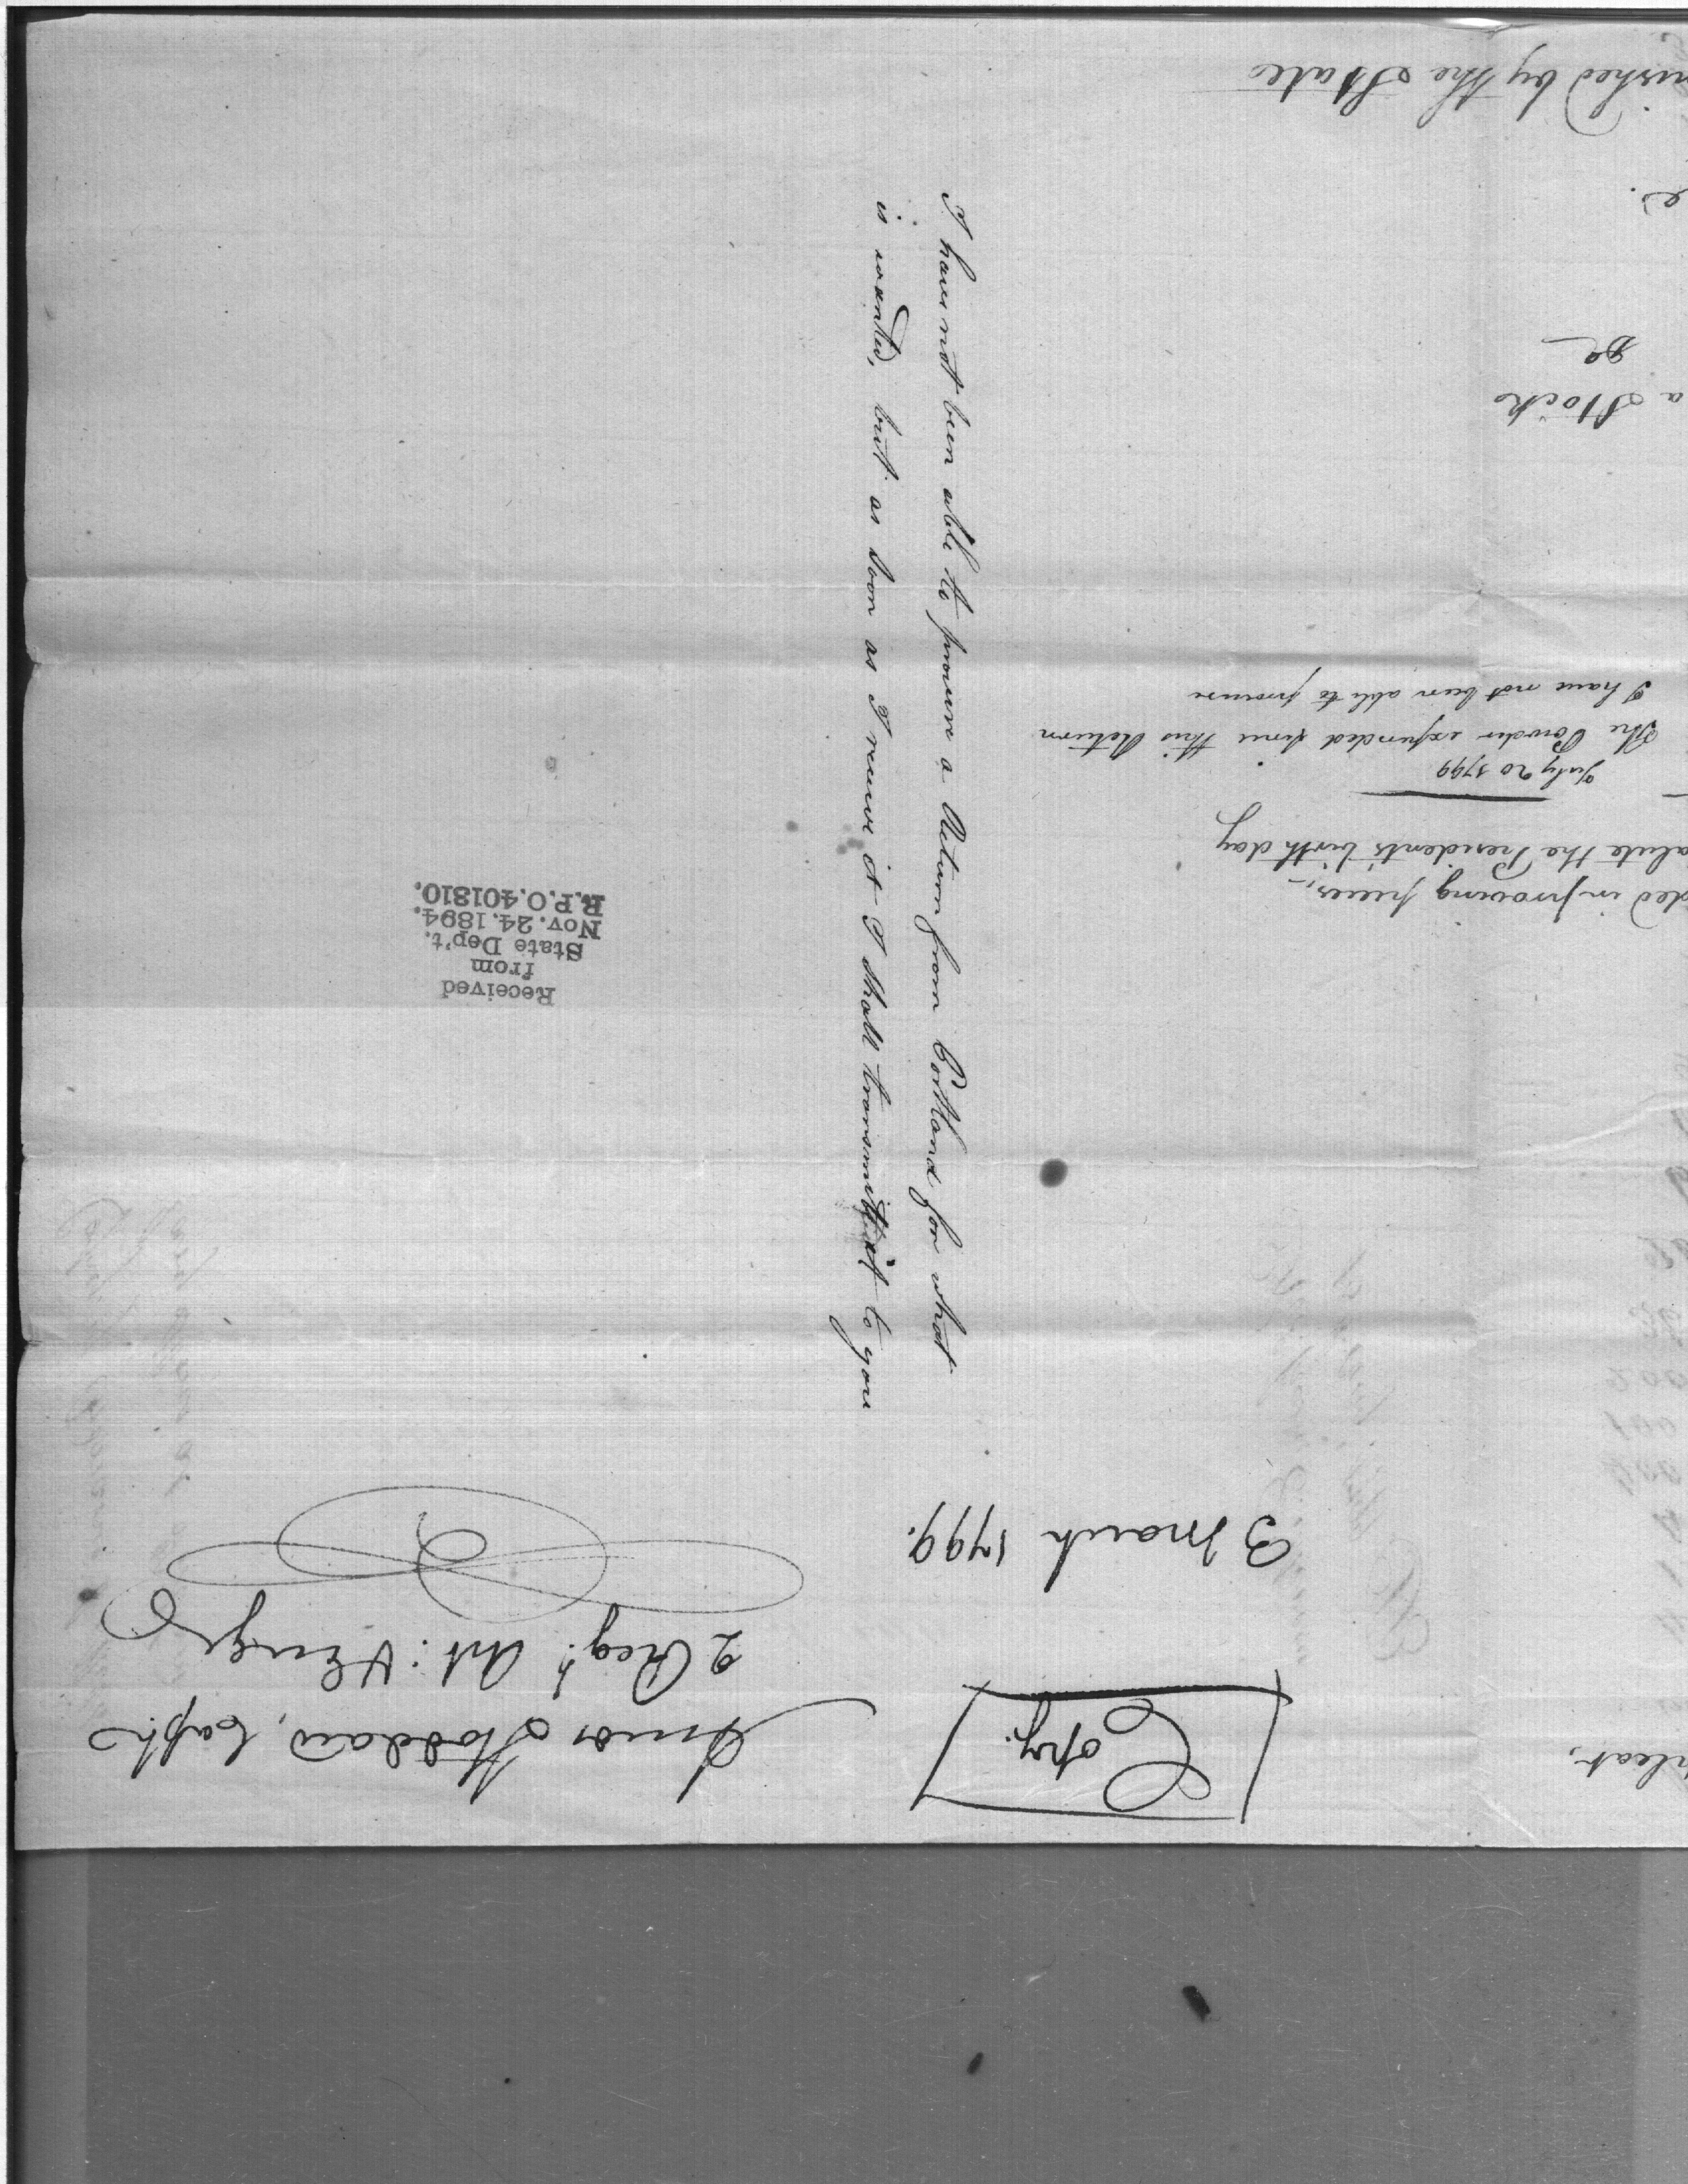 leat,
[Copy.]
3 March 1799.
Amos Stoddard, Capt.
2 Regt. Art: & Engrs
ded in proving pieces,-
alute the Presidents birth day
July 20 1799
The Powder expended since this Return
I have not been able to procure
a Stock
Do
e.
nished by the State
I have not been able to procure a Return from Portland for what
is wanted, but as soon as I receive it I shall transmit it to you
Received
from
State Dep't.
Nov. 24. 1894.
R.P.O. 401810.